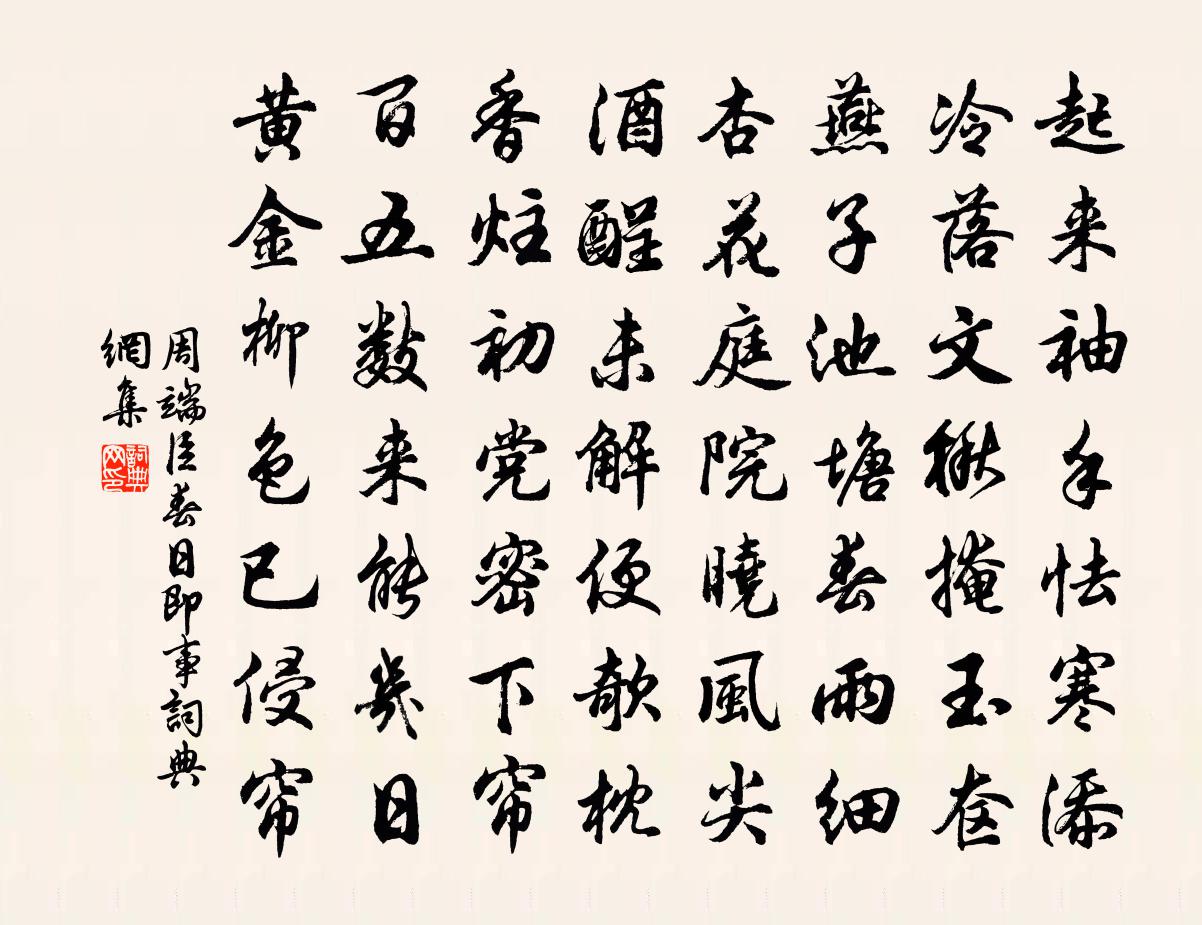 起来袖手怯寒添
冷落文楸掩玉奁
燕子池塘春雨细
杏花庭院曉風尖
酒醒未解便欹枕
香炷初党密下帘
百五数来能幾日
黄金柳色已侵帘
周端臣春日即事詞典
網集
詞典网印